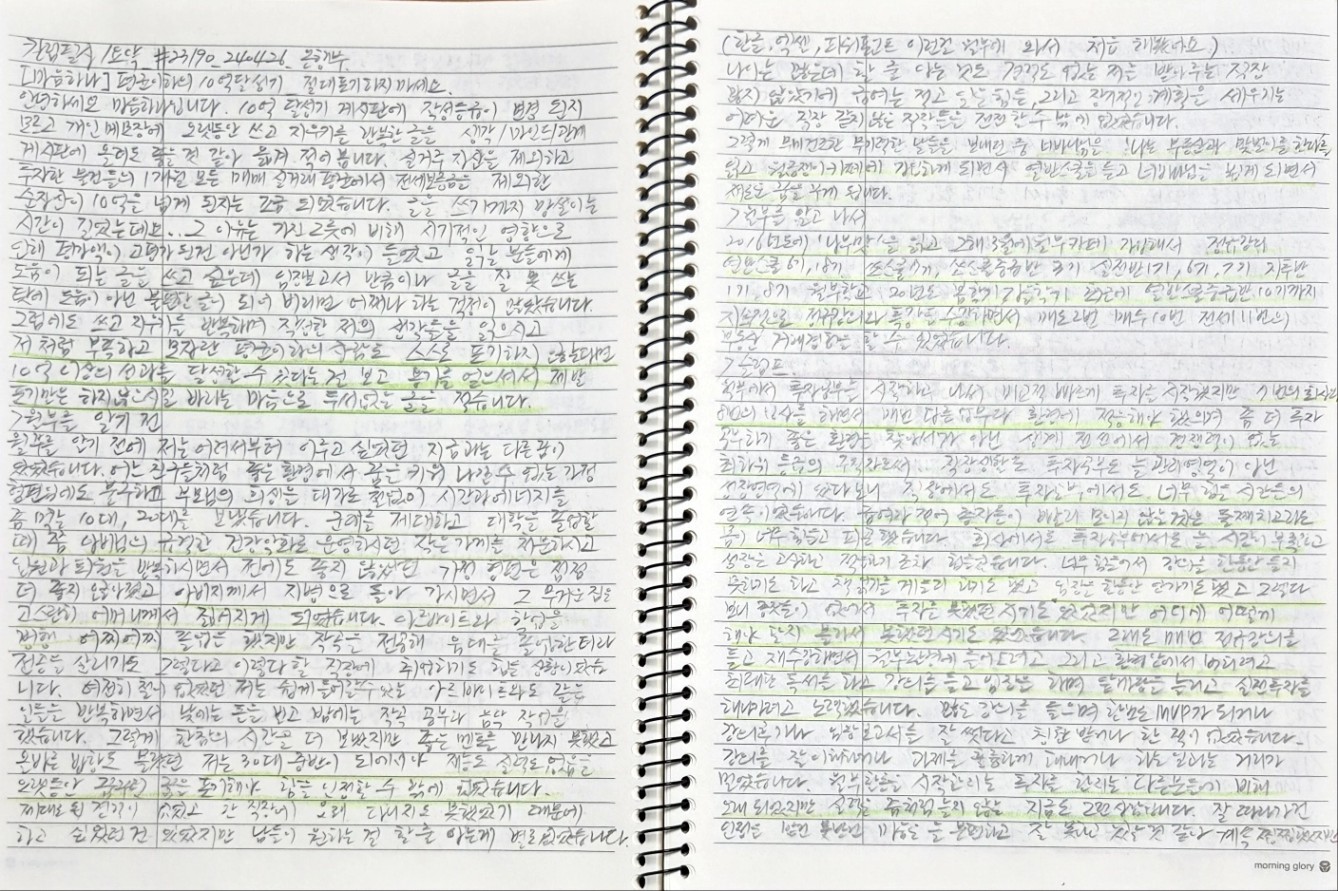 칼럼필사 /토닥 #23/90_240426_은행부
[마음하나] 평균이하의 10억달성기_절대포기하지마세요.
안녕하세요 마음하나입니다. 10억 달성기 게시판에 작성등급이 변경 된지
모르고 개인 메모장에 오랫동안 쓰고 지우기를 반복한 글을 시각/마인드/관계
게시판에 올려도 될 것 같아 옮겨 적어 봅니다. 실거주 지신을 제외하고
투자한 물건들의 1개월 모든 매매 실거래 평균에서 전세보증금을 제외한
순자산이 10억을 넘게 된지는 조금 되었습니다. 글을 쓰기까지 망설이는
시간이 길었는데요...그 이유는 가진 그릇에 비해 시기적인 영향으로
인해 평가액이 고평가된건 아닌가 하는 생각이 들었고 읽는 분들에게
도움이 되는 글을 쓰고 싶은데 임장보고서 만큼이나 글을 잘 못 쓰는
탓에 도움이 아닌 불편한 글이 되어 버리면 어쩌나 하는 걱정이 많았습니다.
그럼에도 쓰고 지우기를 반복하며 작성한 저의 생각들을 읽으시고
저 처럼 부족하고 모자란 평균이하의 사람도 스스로 포기하지 않는다면
10억 이상의 성과를 달성할 수 있다는걸 보고 용기를 얻으셔서 제발
포기만은 하지않으시길 바라는 마음으로 두서없는 글을 적습니다.
>월부를 알기 전
월부를 알기 전에 저는 어려서부터 이루고 싶었던 지금과는 다른꿈이
있었습니다. 여느 친구들처럼 좋은 환경에서 꿈을 키워 나갈 수 없는 가정
형편임에도 불구하고 부모님의 희생을 대가로 끝없이 시간과 에너지를
좀 먹는 10대, 20대를 보냈습니다. 군대를 제대하고 대학을 졸업할
때 쯤 아버님의 급격한 건강악화로 운영하시던 작은가게를 처분하시고
입원과 퇴원을 반복하시면서 전에도 좋지 않았던 가정 형편은 점점
더 좋지 않아졌고 아버지께서 지병으로 돌아 가시면서 그 무거운 짐을
고스란히 어머니께서 짊어지게 되었습니다. 아르바이트와 학업을
병행 어찌어찌 졸업은 했지만 작곡을 전공해 음대를 졸업한터라
전공을 살리기도 그렇다고 이렇다 할 직장에 취업하기도 힘든 상황이었습
니다. 여전히 철이 없었던 저는 쉽게 들어갈수 있는 아르바이트와도 같은
일들을 반복하면서 낮에는 돈을 벌고 밤에는 작곡 공부와 음악 작업을
했습니다. 그렇게 한참의 시간을 더 보냈지만 좋은 멘토를 만나지 못했고
올바른 방향도 몰랐던 저는 30대 중반이 되어서야 재능도 실력도 없음을
오랫동안 꿈꿔왔던 꿈을 포기해야 함을 인정할 수 밖에 없었습니다.
제대로 된 전략이 없었고 한 직장에 오래 다니지도 못했었기 때문에
하고 싶었던건 있었지만 남들이 원하는걸 할줄 아는게 별로 없었습니다.
(한글, 엑셀, 파워포인트 이런건 월부에 와서 처음 해봤네요)
나이는 많은데 할 줄 아는 것도 경력도 없는 저를 받아주는 직장
많지 않았기에 급여는 적고 몸은 힘든, 그리고 장기적인 계획은 세우기는
어려운 직장 같지 않은 직장들을 전전할수 밖에 없었습니다.
그렇게 무미건조한 무기력한 날들을 보내던 중 너바나님을 '나는 부동산과 맞벌이를 한다'를
읽고 월급쟁이카페에 가입하게 되면서 열반스쿨을 듣고 너바나님을 뵙게 되면서
저도 꿈을 꾸게 됩니다.
>월부를 알고 나서
2016년도에 '나부맞'을 읽고 그해 8월에 월부카페 가입해서 정규강의
열반스쿨 6기, 18기 실전반 1기, 6기, 7기 지투반
1기, 8기 월부학교 20년도 봄학기, 가을학기 최근에 열반스쿨중급반 10기까지
지속적으로 정규강의와 특강을 수강하면서 매도2번 매수10번 전세 11번의
부동산 거래경험을 할 수 있었습니다.
>슬럼프.
월부에서 투자공부를 시작하고 나서 비교적 빠르게 투자를 시작했지만 9번의 회사와
8번의 이사를 하면서 매번 다른 업무와 환경에 적응해야 했으며 좀 더 투자
공부하기 좋은 환경을 찾아서가 아닌 생계 전선에서 경쟁력이 없는
최하위 등급의 구직자로써 직장생활도 투자공부도 늘 관리영역이 아닌
성장영역에 있다보니 직장에서도 투자공부에서도 너무 힘든 시간들의
연속이었습니다. 급여가 적어 종잣돈이 빨리 모이지 않는것은 둘째치고라도
몸이 너무 힘들고 피곤했습니다. 회사에서도 투자공부에서도 늘 시간이 부족하고
성장은 고사하고 적응하기 조차 힘들었습니다. 너무 힘들어서 강의를 한동안 듣지
못하기도 하고 책 읽기를 게을리 하기도 했고 임장은 한동안 안가기도 했고 그렇다
보니 종잣돈이 없어서 투자를 못했던 시기도 있었지만 어디에 어떻게
해야 할지 몰라서 못했던 시기도 있었습니다. 그래도 매번 정규강의를
듣고 재수강하면서 월부환경에 들어오려고 그리고 환경안에서 버티려고
최대한 독서를 하고 강의를 듣고 임장을 하며 앞마당을 늘리고 실전투자를
해나가려고 노력했습니다. 많은 강의를 들으며 한번도 MVP가 되거나
강의후기나 임장보고서를 잘 썼다고 칭찬 받거나 한 적이 없었습니다.
강의를 잘 이해하거나 과제를 훌륭하게 해내거나 하는 일과는 거리가
멀었습니다. 월부활동을 시작한지는 투자를 한지는 다른분들에 비해
오래 되었지만 실력은 좀처럼 늘지 않는 지금도 그런 상황입니다. 잘 따라가던